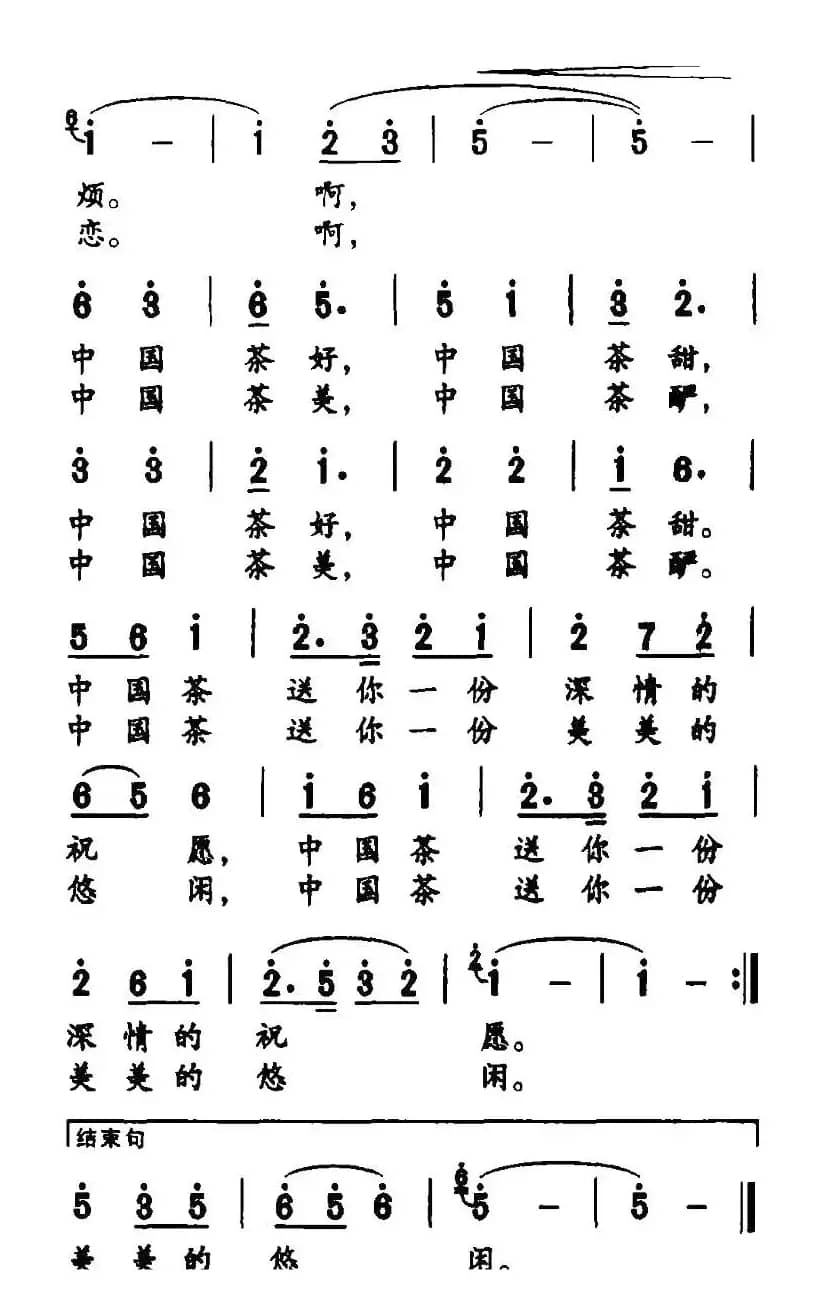 6 1 - | 1 2 3 | 5 - | 5 - |
烦。 啊,
恋。 啊,
6 3 | 6 5. | 5 1 | 3 2. |
中 国 茶 好, 中 国 茶 甜,
中 国 茶 美, 中 国 茶 酽,
3 3 | 2 1. | 2 2 | 1 6. |
中 国 茶 好, 中 国 茶 甜。
中 国 茶 美, 中 国 茶 酽。
5 6 1 | 2. 3 2 1 | 2 7 2 |
中 国 茶 送 你 一 份 深 情 的
中 国 茶 送 你 一 份 美 美 的
6 5 6 | 1 6 1 | 2. 3 2 1 |
祝 愿, 中 国 茶 送 你 一 份
悠 闲, 中 国 茶 送 你 一 份
2 6 1 | 2. 5 3 2 | 2 1 - | 1 - :|
深 情 的 祝 愿。
美 美 的 悠 闲。
结束句
5 3 5 | 6 5 6 | 6 5 - | 5 - |
美 美 的 悠 闲。